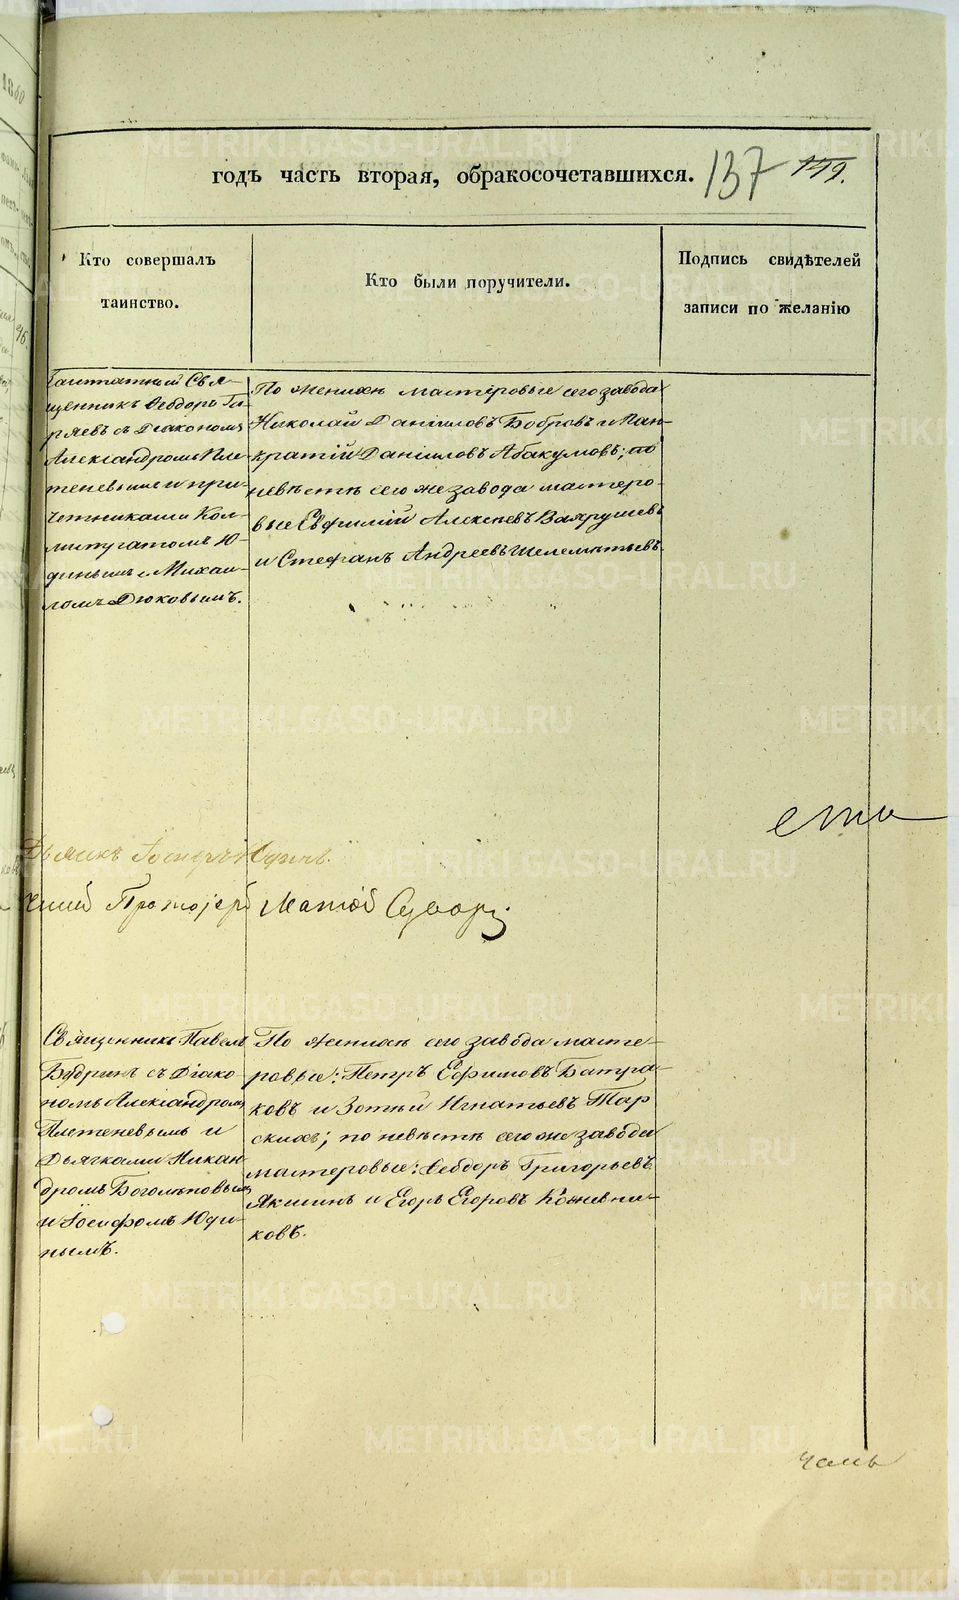 годъ часть вторая, обракосочетавшихся. 137 149.
Кто совершалъ
таинство.
Кто были поручители.
Подпись свидѣтелей
записи по желанію
Свя-
щенникъ Ѳеодоръ Ги-
ряевъ съ Діакономъ
Александромъ Пле-
теневымъ и при-
четниками Кол-
Ю-
динымъ и Михаи-
ломъ Дюковымъ.
По женихѣ мастеровые сего завода
Николай Даніиловъ Бобровъ и Пан-
кратій Даніиловъ Абакумовъ; по
невѣстѣ сего же завода мастеро-
вые Евфимій Алексѣевъ Вахрушевъ
и Стефанъ Андреевъ Шелементьевъ.
ста
Дьячекъ Іосифъ Юдинъ.
Протоіерей
Священникъ Павелъ
Будринъ съ Діако-
номъ Александромъ
Плетеневымъ и
Дьячками Никан-
дромъ Боголѣповымъ
и Іосифомъ Юди-
нымъ.
По женихѣ сего завода масте-
ровые: Петръ Ефимовъ Батура-
ковъ и Зотій Игнатьевъ Тар
скихъ; по невѣстѣ сего же завода
мастеровые: Ѳеодоръ Григорьевъ
Якшинъ и Егоръ Егоровъ Кожевни-
ковъ.
METRIKI.GASO-URAL.RU